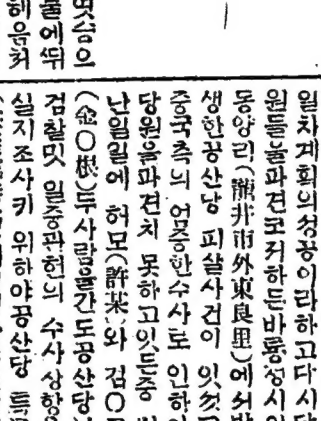 엿슴으
물에뛰
헤음처
일차계획의성공이라하고다시당
원들을파견코저하든바룡정시외
동양리(龍井市外東良里)에서발
생한공산당 피살사건이 잇섯고
중국측의 엄중한수사로 인하
당원을파견치 못하고잇든중
난일일에 허모(許某)와 김〇
(金〇根)두사람을간도공산당
검찰밋 일중관헌의 수사상황
실지조사키 위하야공산당 특